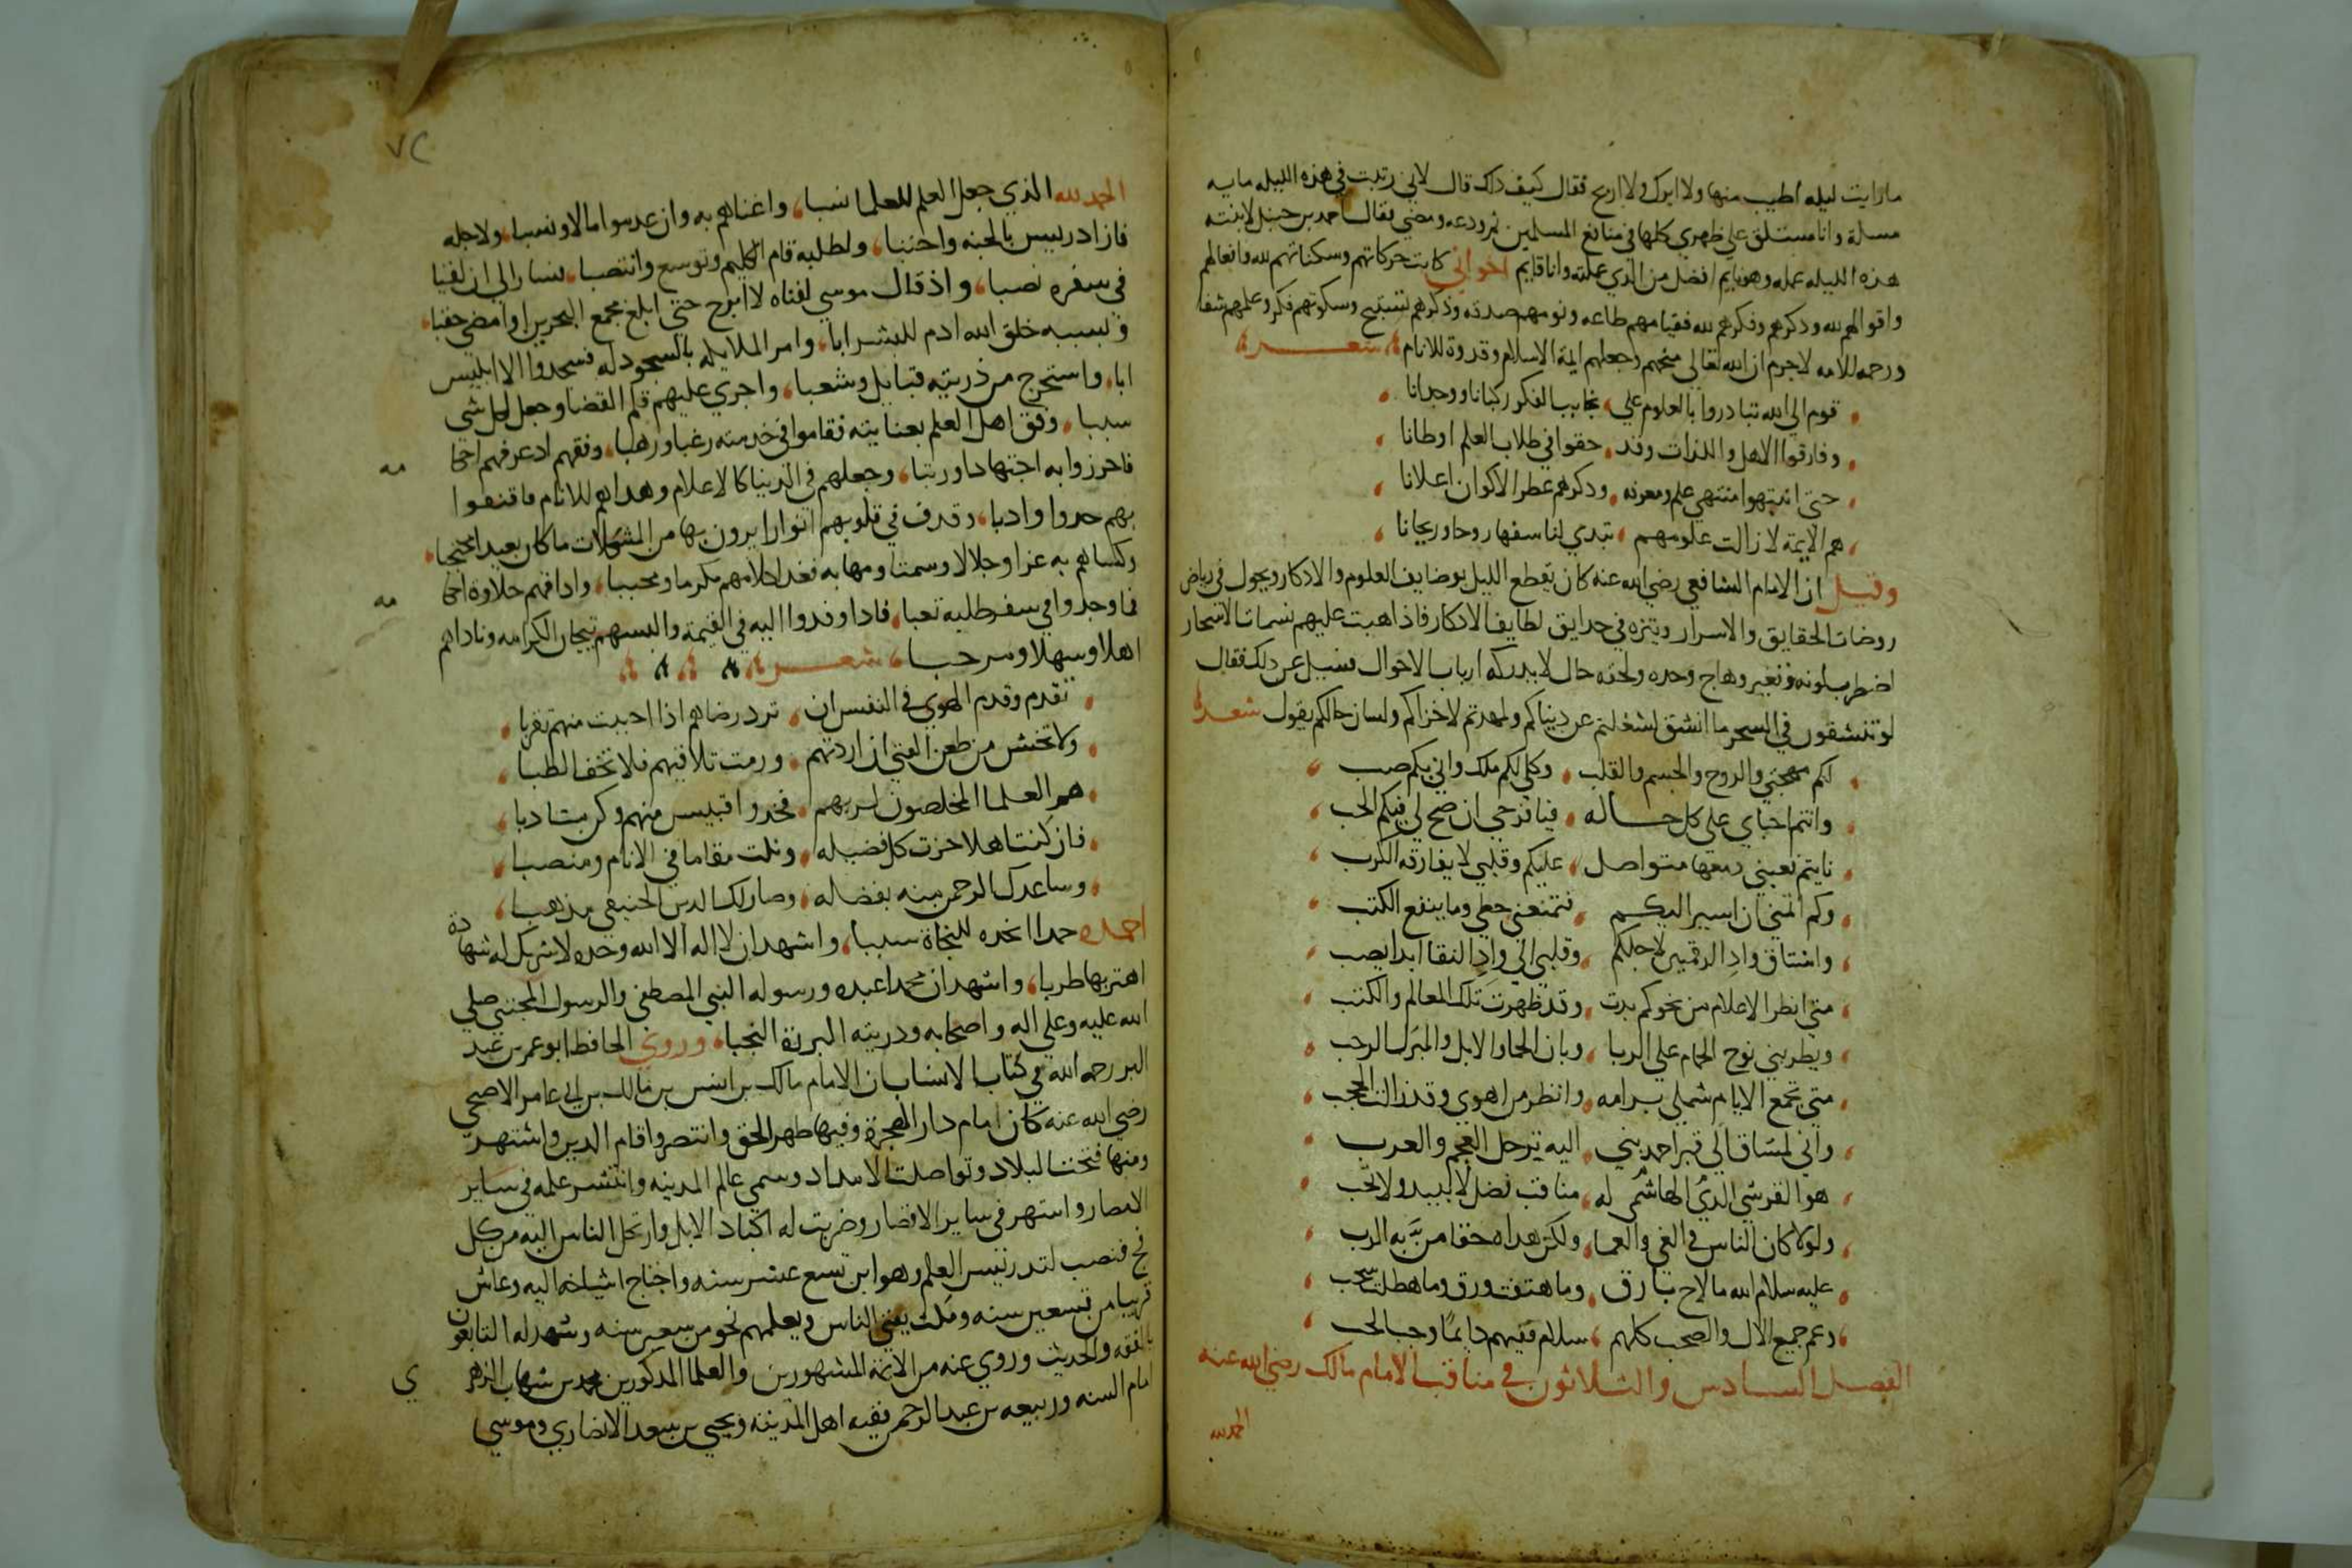 ما رايت ليله اطيب منها ولا ابرك ولا اربح فقال كيف ذاك قال لاني رتبت في هذه الليله مايه
مسلة وانا مستلق على ظهري كلها في منافع المسلمين ثم ودعه ومضي فقال احمد بن حنبل لابنته
هذه الليله عمله وهو نايم افضل من الذي عملته وانا قايم اخواني كانت حركاتهم وسكناتهم لله وافعالهم
واقوالهم لله وذكرهم وفكرهم لله فقيامهم طاعه ونومهم صدقه وذكرهم تسبيح وسكوتهم فكر وعلمهم شفا
ورحمه للامه لاجرم ان الله تعالى منحهم وجعلهم ايمة الاسلام وقدوة للانام شعر
قوم الى الله تبادروا بالعلوم علي نجايب الفكر ركبانا ووحدانا
وفارقوا الاهل واللذات وقد حقوا في طلاب العلم اوطانا
حتى انتهوا منتهي علم ومعرفه وذكرهم عطر الاكوان اعلانا
هم الايمة لا زالت علومهم تبدي لنا سفها روحا وريحانا
وقيل ان الامام الشافعي رضي الله عنه كان يقطع الليل بوضايف العلوم والاذكار ويجول في رياض
روضات الحقايق والاسرار ويتنزه في حدايق لطايف الاذكار فاذا هبت عليهم نسمات الاسحار
اضطرب لونه وتغير وهاج وجده ولحقه حال لا يدركه ارباب الاحوال فسيل عن ذلك فقال
لو تنشقون في السحر ما انشق لشغلتم عن دنياكم ولهدتم لاخراكم ولسان حالكم يقول شعر
لكم مهجتي والروح والجسم والقلب وكلي لكم ملك واني بكم صب
وانتم احباي على كل حاله فيا فرحي ان صح لي فيكم الحب
نايتم فعيني دمعها متواصل عليكم وقلبي لا يفارقه الكرب
وكم اتمني ان اسير اليكم فتمنعني حظي وما ينفع الكتب
واشتاق واد الرقمين لاجلكم وقلبي الى واد النقا ابدا يصب
متى انظر الاعلام من نحوكم بدت وقد ظهرت تلك المعالم والكتب
ويطربني نوح الحمام على الربا وبان الحما والابل والمبرك الرحب
متى تجمع الايام شملي برامه وانظر من اهوي وقد زالت الحجب
واني لمشتاق الى قبر احمد بني اليه ترحل العجم والعرب
هو القرشي الذي الهاشمي له مناقب فضل لا تبيد ولا تخب
ولولا كان الناس في الغي والعما ولكن هداه حقا من به الرب
عليه سلام الله ما لاح بارق وما هتفت ورق وما هطلت سحب
وعم جميع الال والصحب كلهم سلام ففيهم دايما وجب الحب
الفصل السادس والثلاثون في مناقب الامام مالك رضي الله عنه
الحمد لله
٧٢
الحمد لله الذي جعل العلم للعلما نسبا، واغناهم به وان عدموا مالا ونسبا، ولاجله
فاز ادريس بالجنه واجتبا، ولطلبه قام الكليم وتوسع وانتصبا، فسار الى ان لقيا
في سفره نصبا، واذ قال موسي لفتاه لا ابرح حتى ابلغ مجمع البحرين او امضي حقبا،
وبسببه خلق الله ادم للبشر ابا، وامر الملايكه بالسجود له فسجدوا الا ابليس
ابا، واستخرج من ذريته قبايل وشعبا، واجري عليهم قلم القضا وجعل لكل شي
سببا، وفق اهل العلم بعنايته فقاموا في خدمته رغبا ورهبا، وفقهم اذ عرفهم احكا مه
فاحرزوا به اجتهادا ورتبا، وجعلهم في الدنيا كالاعلام وهداهم للانام فاقتفوا
بهم حدوا وادبا، وقذف في قلوبهم انوارا يرون بها من المشكلات ما كان بعيدا محتجبا،
وكساهم به عزا وجلالا وسمتا ومهابه فغدا كلامهم مكرما ومحببا، واذاقهم حلاوة احكا مه
فما وجدوا في سفر طلبه تعبا، فاذا وفدوا اليه في القيمة والبسهم تيجان الكرامه وناداهم
اهلا وسهلا ومرحبا، شعر
تقدم وقدم الهوي في النفس ان ترد رضاهم اذا احببت منهم تقربا
ولا تخش من طعن القني ان اردتهم ورمت تلاقيهم فلا تخف الظبا
هم العلما المخلصون لربهم فخذوا قبيس منهم وكن متادبا
فان كنت اهلا حزت كل فضيله ونلت مقاما في الانام ومنصبا
وساعدك الرحمن منه بفضله وصار لك الدين الحنيفي مذهبا
احمده حمدا اتخذه للنجاة سببا، واشهد ان لا اله الا الله وحده لا شريك له شهادة
اهتز بها طربا، واشهد ان محمدا عبده ورسوله النبي المصطفى والرسول المجتبي صلي
الله عليه وعلى اله واصحابه وذريته البررة النجبا، وروي الحافظ ابو عمر بن عبد
البر رحمه الله في كتاب الانساب ان الامام مالك بن انس بن مالك بن ابي عامر الاصبحي
رضي الله عنه كان امام دار الهجرة وفيها ظهر الحق وانتصر واقام الدين واشتهر
ومنها فتحت البلاد وتواصلت الامداد وسمي عالم المدينه وانتشر علمه في ساير
الامصار واشتهر في ساير الاقطار وضربت له اكباد الابل وارتحل الناس اليه من كل
فج فنصب لتدريس العلم وهو ابن تسع عشر سنه واحتاج اشياخه اليه وعاش
قريبا من تسعين سنه ومكث يفتي الناس ويعلمهم نحو من سبعين سنه وشهد له التابعون
بالفقه والحديث وروي عنه من الايمة المشهورين والعلما المذكورين محمد بن شهاب الزهر ي
امام السنه وربيعه بن عبد الرحمن فقيه اهل المدينه ويحيي بن سعد الانصاري وموسي